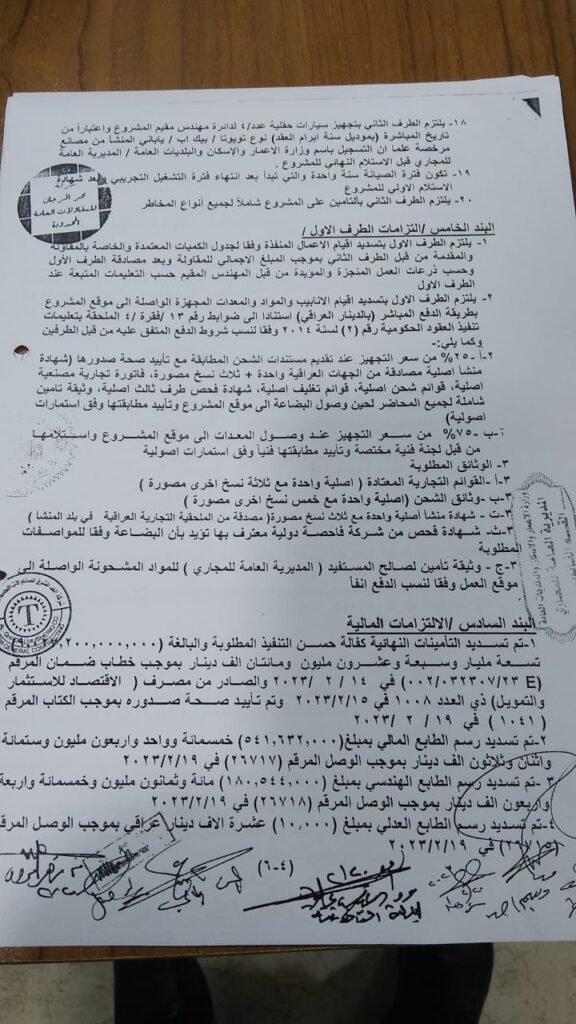 ١٨- يلتزم الطرف الثاني بتجهيز سيارات حقلية عدد/٤ لدائرة مهندس مقيم المشروع واعتباراً من
تاريخ المباشرة (بموديل سنة ابرام العقد) نوع تويوتا / بيك اب / ياباني المنشأ من مصانع
مرخصة علما ان التسجيل باسم وزارة الاعمار والإسكان والبلديات العامة / المديرية العامة
للمجاري قبل الاستلام النهائي للمشروع .
١٩- تكون فترة الصيانة سنة واحدة والتي تبدأ بعد انتهاء فترة التشغيل التجريبي بعد شهادة
الاستلام الاولي للمشروع
٢٠- يلتزم الطرف الثاني بالتامين على المشروع شاملاً لجميع أنواع المخاطر
بحر المرجان
للمقاولات العامة
المحدودة
البند الخامس /التزامات الطرف الاول /
١- يلتزم الطرف الاول بتسديد اقيام الاعمال المنفذة وفقا لجدول الكميات المعتمدة والخاصة بالمقاولة
والمقدمة من قبل الطرف الثاني بموجب المبلغ الاجمالي للمقاولة وبعد مصادقة الطرف الأول
وحسب ذرعات العمل المنجزة والمؤيدة من قبل المهندس المقيم حسب التعليمات المتبعة عند
الطرف الاول
٢- يلتزم الطرف الاول بتسديد اقيام الانابيب والمواد والمعدات المجهزة الواصلة الى موقع المشروع
بطريقة الدفع المباشر (بالدينار العراقي) استنادا الى ضوابط رقم ١٣ /فقرة /٤ الملحقة بتعليمات
تنفيذ العقود الحكومية رقم (٢) لسنة ٢٠١٤ وفقا لنسب شروط الدفع المتفق عليه من قبل الطرفين
وكما يلي:-
٢-أ -٢٥% من سعر التجهيز عند تقديم مستندات الشحن المطابقة مع تأييد صحة صدورها (شهادة
منشأ اصلية مصادقة من الجهات العراقية واحدة + ثلاث نسخ مصورة، فاتورة تجارية مصنعية
اصلية، قوائم شحن اصلية، قوائم تغليف اصلية، شهادة فحص طرف ثالث اصلية، وثيقة تامين
شاملة لجميع المخاطر لحين وصول البضاعة الى موقع المشروع وتأييد مطابقتها وفق استمارات
اصولية)
٢-ب -٧٥% من سعر التجهيز عند وصول المعدات الى موقع المشروع واستلامها
من قبل لجنة فنية مختصة وتأييد مطابقتها فنياً وفق استمارات اصولية
٣- الوثائق المطلوبة
٣-أ- القوائم التجارية المعتادة ( اصلية واحدة مع ثلاثة نسخ اخرى مصورة )
٣-ب- وثائق الشحن (اصلية واحدة مع خمس نسخ اخرى مصورة )
٣-ت- شهادة منشأ أصلية واحدة مع ثلاث نسخ مصورة( مصدقة من الملحقية التجارية العراقية في بلد المنشأ )
٣-ث- شهادة فحص من شركة فاحصة دولية معترف بها تؤيد بأن البضاعة وفقا للمواصفات
المطلوبة
٣-ج - وثيقة تأمين لصالح المستفيد ( المديرية العامة للمجاري ) للمواد المشحونة الواصلة الى
موقع العمل وفقا لنسب الدفع انفاً
البند السادس /الالتزامات المالية
١-تم تسديد التأمينات النهائية كفالة حسن التنفيذ المطلوبة والبالغة ( ٢٠٠,٠٠٠,٠٠٠)
تسعة مليار وسبعة وعشرون مليون ومائتان الف دينار بموجب خطاب ضمان المرقم
(E ٠٠٢/٠٣٢٣٠٧/٢٣) في ١٤ / ٢ / ٢٠٢٣ والصادر من مصرف ( الاقتصاد للاستثمار
والتمويل) ذي العدد ١٠٠٨ في ٢٠٢٣/٢/١٥ وتم تأييد صحة صدوره بموجب الكتاب المرقم
( ١٠٤١ ) في ١٩ / ٢ / ٢٠٢٣
٢-تم تسديد رسم الطابع المالي بمبلغ( ٥٤١,٦٣٢,٠٠٠) خمسمائة وواحد واربعون مليون وستمائة
واثنان وثلاثون الف دينار بموجب الوصل المرقم (٢٦٧١٧) في ٢٠٢٣/٢/١٩
٣ -تم تسديد رسم الطابع الهندسي بمبلغ (١٨٠,٥٤٤,٠٠٠) مائة وثمانون مليون وخمسمائة واربعة
واربعون الف دينار بموجب الوصل المرقم (٢٦٧١٨) في ٢٠٢٣/٢/١٩
٤-تم تسديد رسم الطابع العدلي بمبلغ (١٠,٠٠٠) عشرة الاف دينار عراقي بموجب الوصل المرقم
في ٢٠٢٣/٢/١٩
(٤-٦)